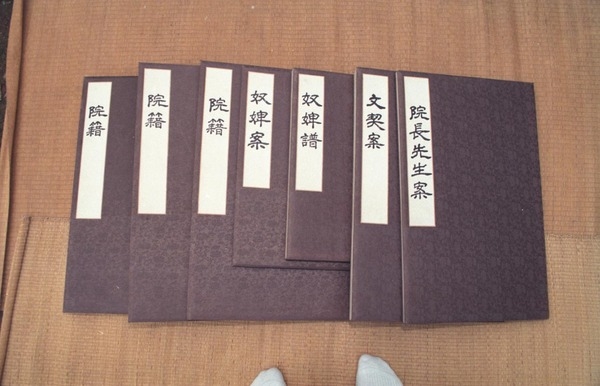 院籍
院籍
院籍
奴婢案
奴婢譜
文契案
院長先生案